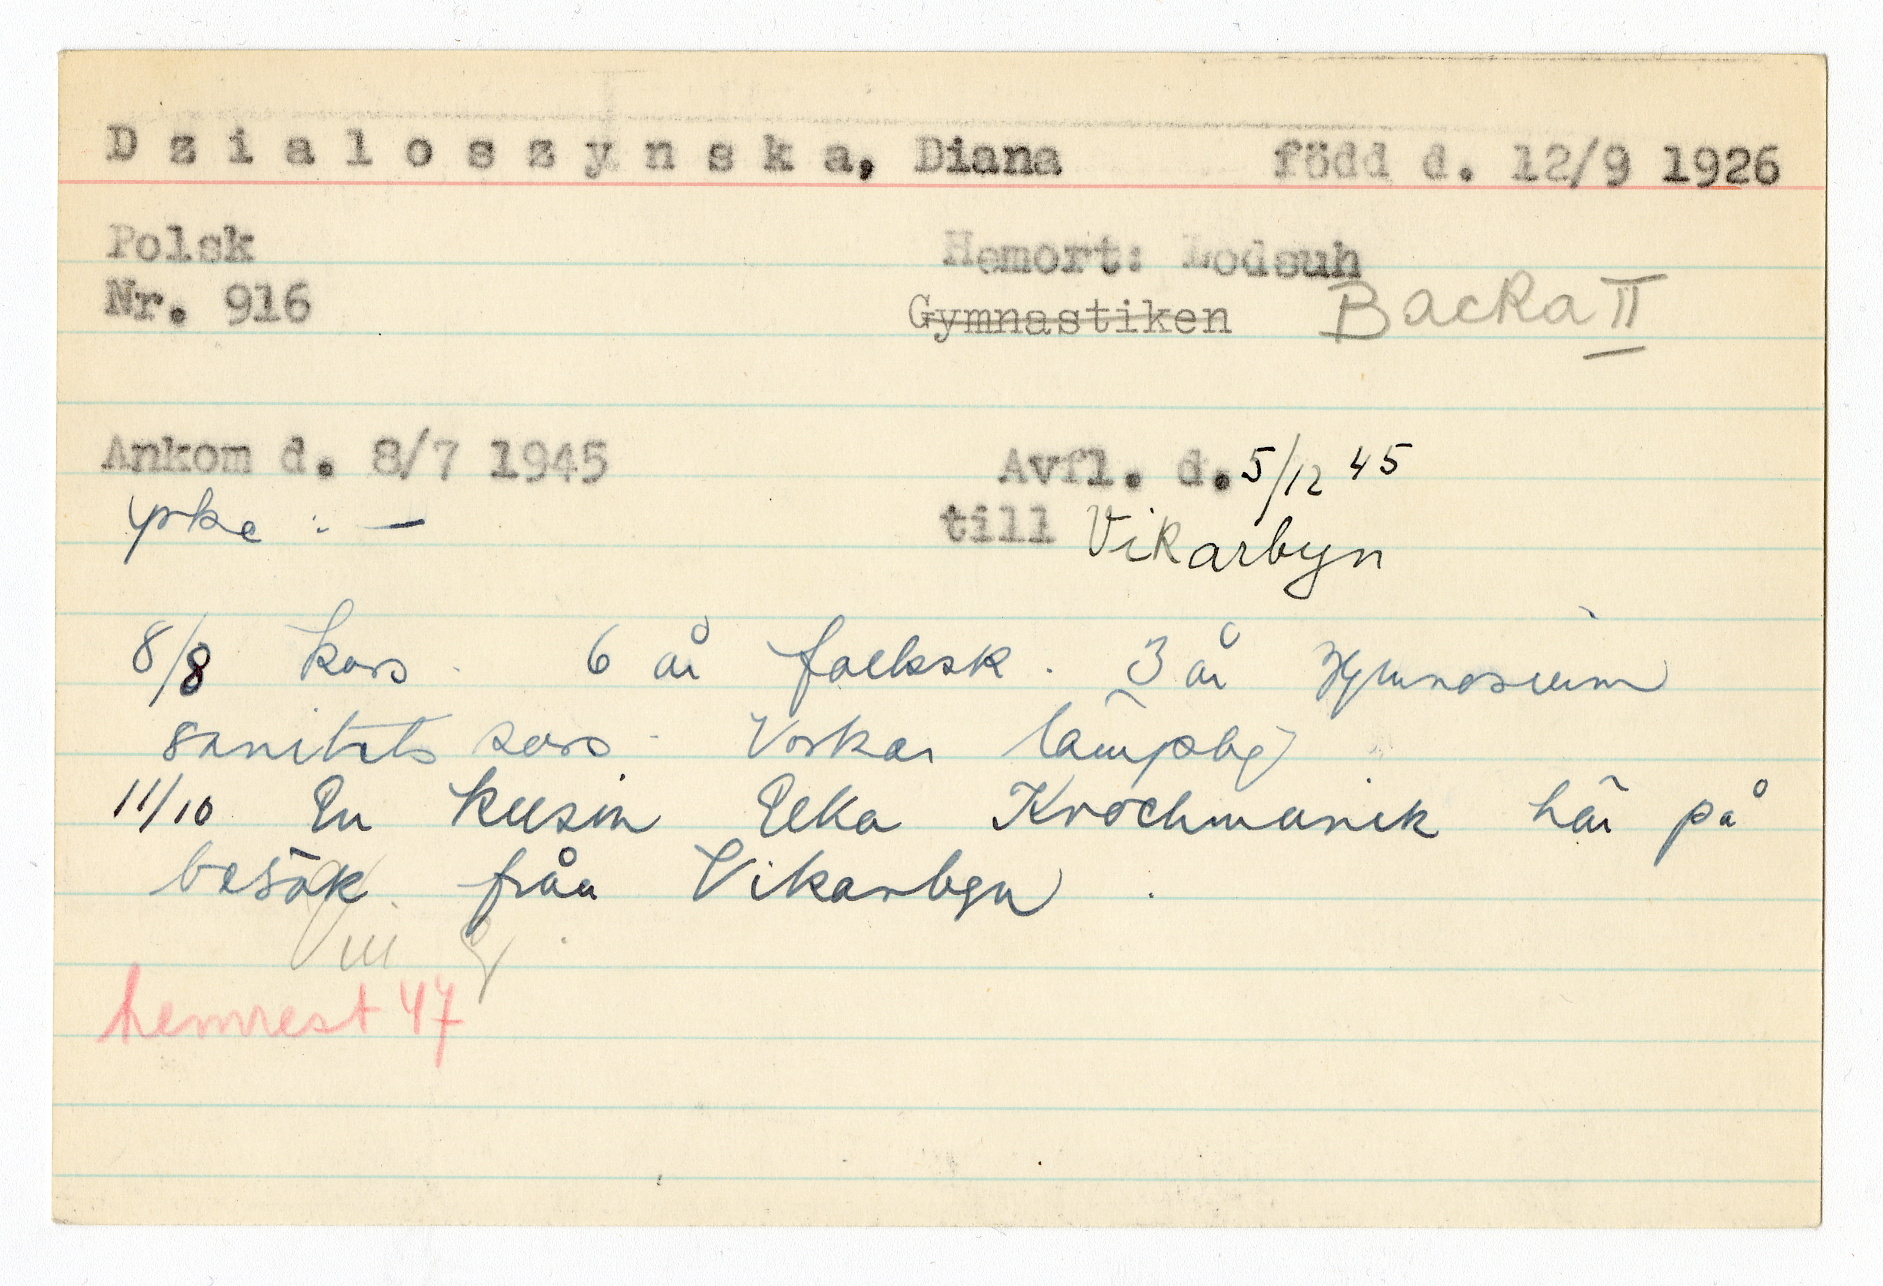 D z i a l o s z y n s k a, Diana född d. 12/9 1926
Polsk Hemort: Lodsuh
Nr. 916 Gymnastiken Backa II
Ankom d. 8/7 1945 Avfl. d. 5/12 45
yrke : — till Vikarbyn
8/8 kors. 6 år folksk. 3 år Gymnasium
sanitets kors. Verkar lämplig
11/10 En kusin Elka Krochmanik här på
besök från Vikarbyn.
hemrest 47